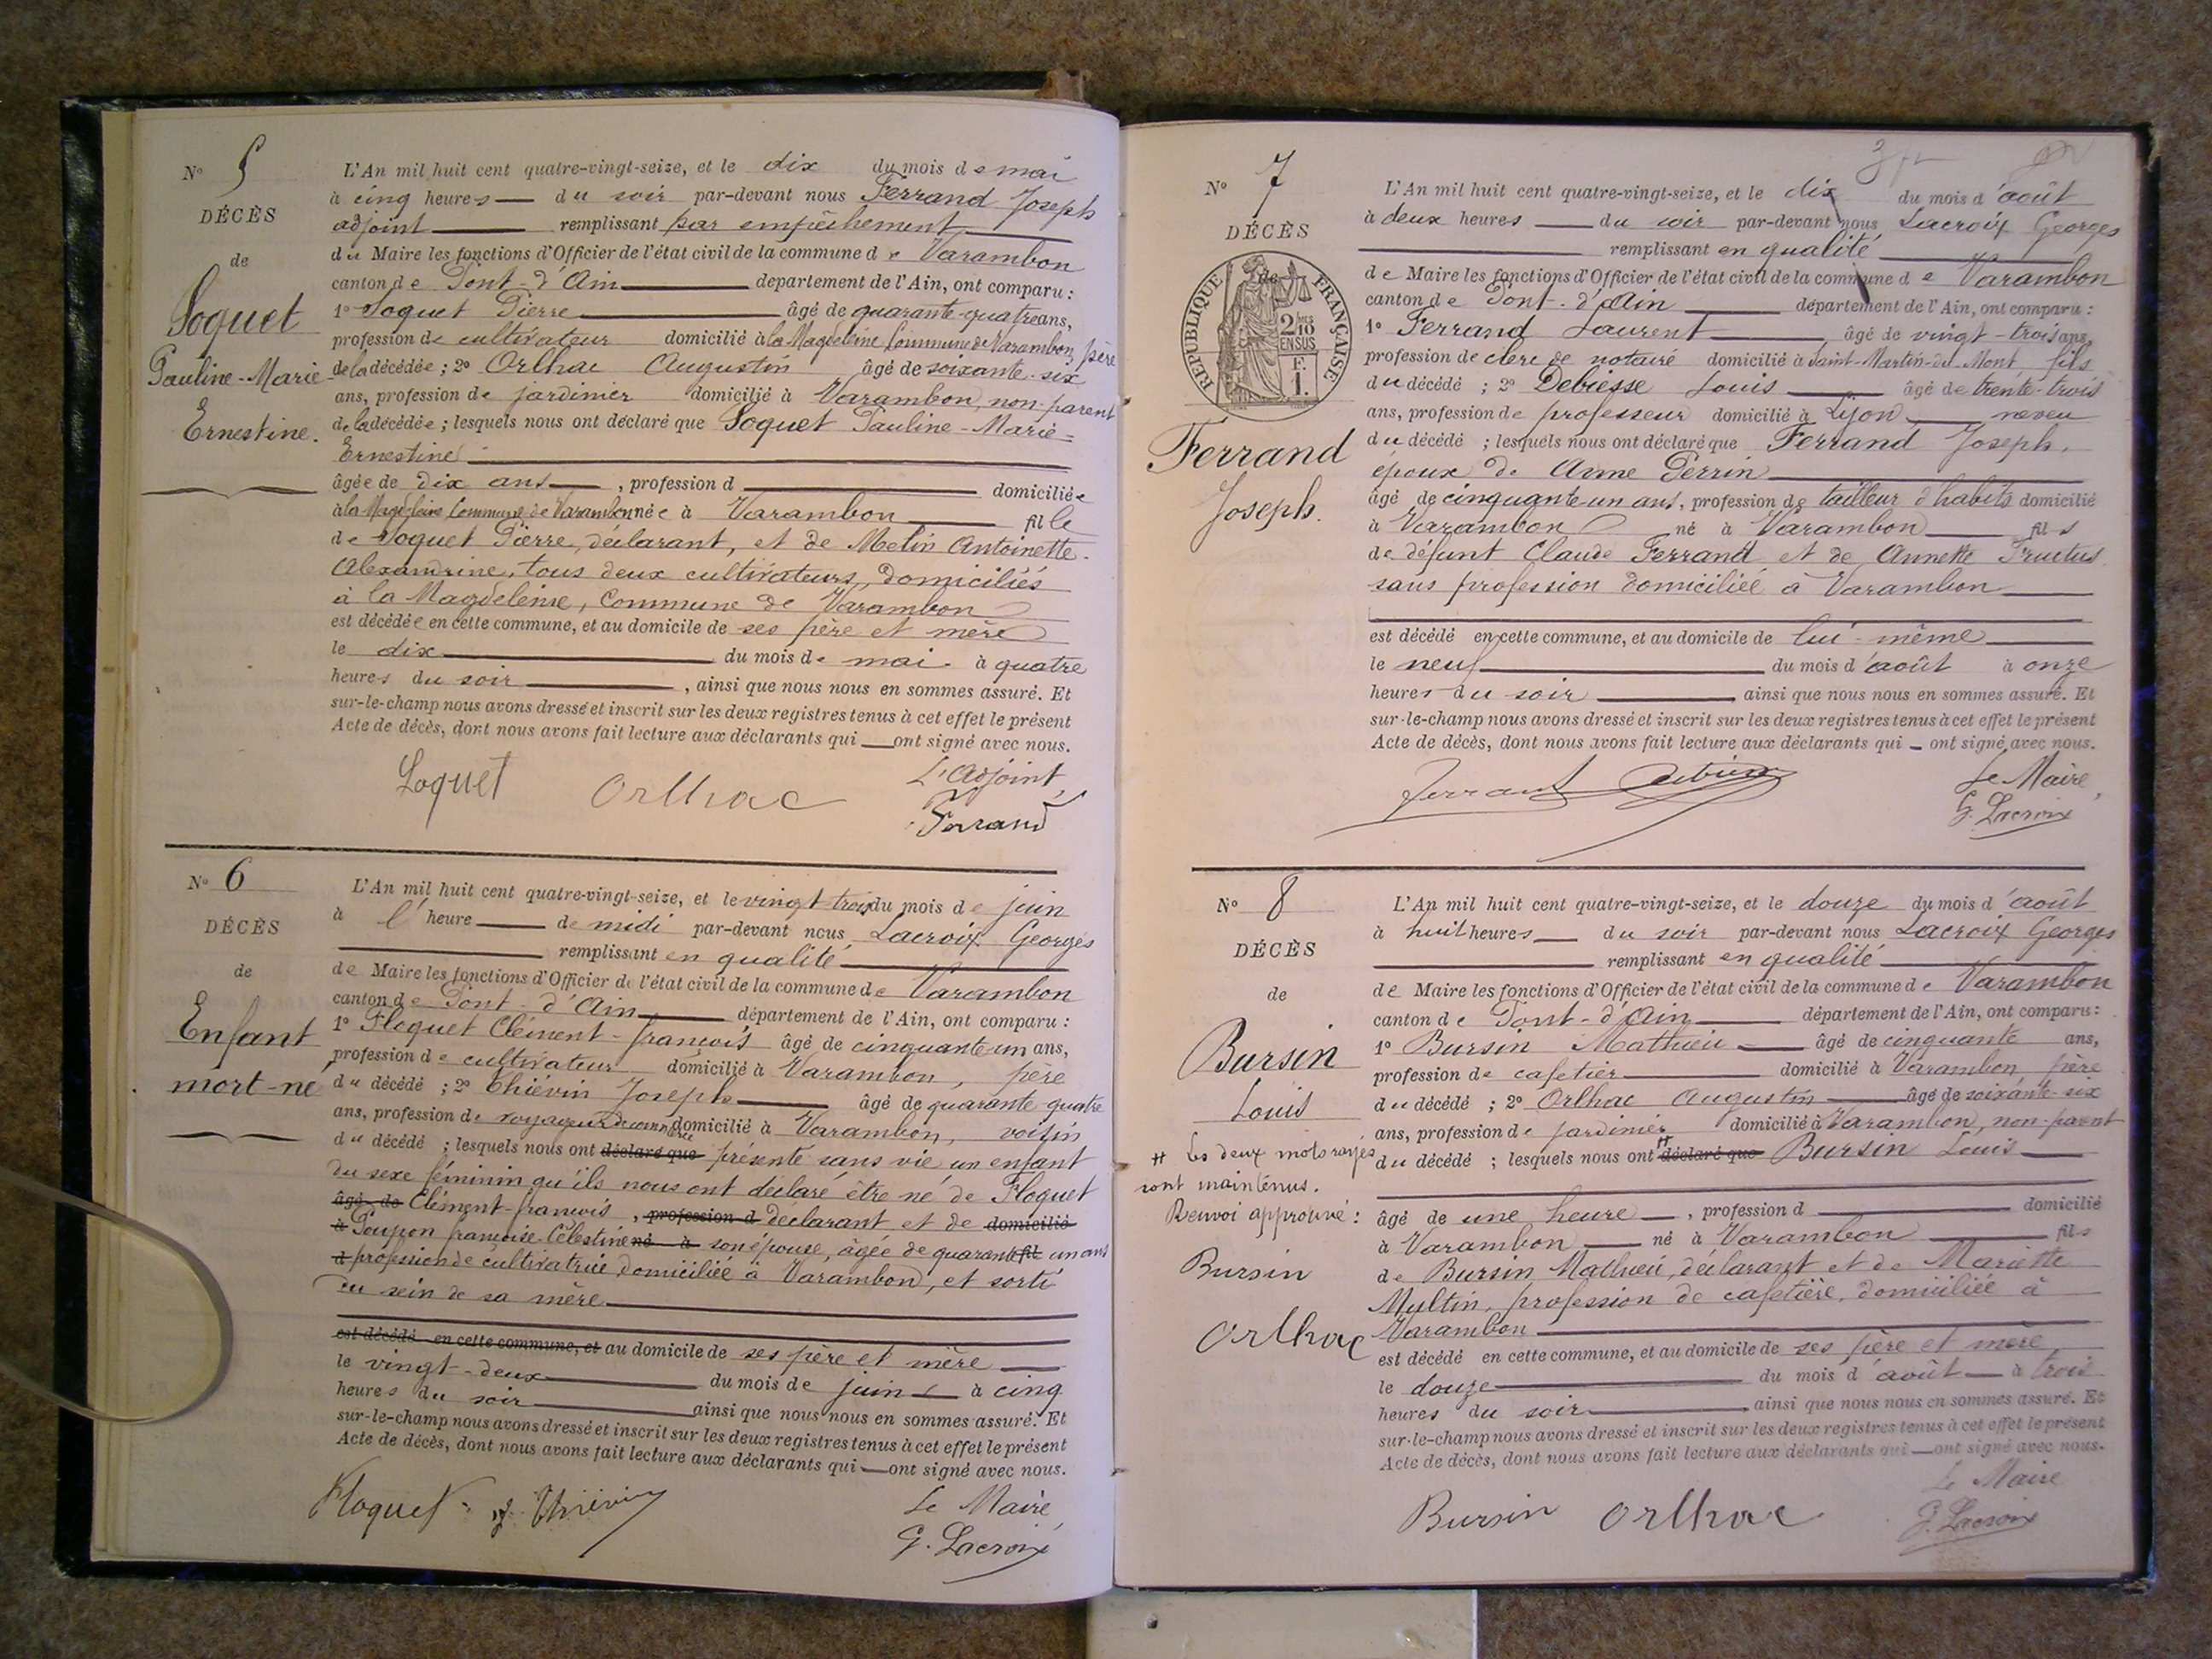 N° 5
DÉCÈS
de
Loquet
Pauline-Marie-
Ernestine.
L'An mil huit cent quatre-vingt-seize, et le dix du mois de mai
à cinq heures du soir par-devant nous Ferrand Joseph
adjoint remplissant par empêchement
du Maire les fonctions d'Officier de l'état civil de la commune de Varambon
canton de Pont-d'Ain departement de l'Ain, ont comparu :
1° Loquet Pierre âgé de quarante-quatre ans,
profession de cultivateur domicilié à la Magdeleine Commune de Varambon, père
de la décédée ; 2° Orlhac Augustin âgé de soixante-six
ans, profession de jardinier domicilié à Varambon, non-parent
de la décédée ; lesquels nous ont déclaré que Loquet Pauline-Marie-
Ernestine
âgée de dix ans, profession d domiciliée
à la Magdeleine Commune de Varambon née à Varambon fille
de Loquet Pierre, déclarant, et de Metin Antoinette-
Alexandrine, tous deux cultivateurs, domiciliés
à la Magdeleine, Commune de Varambon
est décédée en cette commune, et au domicile de ses père et mère
le dix du mois de mai à quatre
heures du soir, ainsi que nous nous en sommes assuré. Et
sur-le-champ nous avons dressé et inscrit sur les deux registres tenus à cet effet le présent
Acte de décès, dont nous avons fait lecture aux déclarants qui ont signé avec nous.
Loquet Orlhac L'Adjoint,
Ferrand
N° 6
DÉCÈS
de
Enfant
mort-né
L'An mil huit cent quatre-vingt-seize, et le vingt-trois du mois de juin
à l'heure de midi par-devant nous Lacroix Georges
remplissant en qualité
de Maire les fonctions d'Officier de l'état civil de la commune de Varambon
canton de Pont-d'Ain département de l'Ain, ont comparu :
1° Floquet Clément-françois âgé de cinquante-un ans,
profession de cultivateur domicilié à Varambon, père
du décédé ; 2° Thiévin Joseph âgé de quarante-quatre
ans, profession de voyageur de commerce domicilié à Varambon, voisin
du décédé ; lesquels nous ont déclaré que présenté sans vie un enfant
du sexe féminin qu'ils nous ont déclaré être né de Floquet
âgé de Clément-françois, profession d déclarant et de domicilié
à Poupon françoise-Célestine né à son épouse, âgée de quarante fil un ans
d profession de cultivatrice domiciliée à Varambon, et sorti
du sein de sa mère
est décédé en cette commune, et au domicile de ses père et mère
le vingt-deux du mois de juin à cinq
heures du soir ainsi que nous nous en sommes assuré. Et
sur-le-champ nous avons dressé et inscrit sur les deux registres tenus à cet effet le présent
Acte de décès, dont nous avons fait lecture aux déclarants qui ont signé avec nous.
Floquet J. Thiévin Le Maire,
G. Lacroix
N° 7
DÉCÈS
de
RÉPUBLIQUE FRANÇAISE
2/10 EN SUS
F. 1.
Ferrand
Joseph.
L'An mil huit cent quatre-vingt-seize, et le dix du mois d'août
à deux heures du soir par-devant nous Lacroix Georges
remplissant en qualité
de Maire les fonctions d'Officier de l'état civil de la commune de Varambon
canton de Pont-d'Ain département de l'Ain, ont comparu :
1° Ferrand Laurent âgé de vingt-trois ans,
profession de clerc de notaire domicilié à Saint-Martin-du-Mont fils
du décédé ; 2° Debiesse Louis âgé de trente-trois
ans, profession de professeur domicilié à Lyon neveu
du décédé ; lesquels nous ont déclaré que Ferrand Joseph,
époux de Anne Perrin
âgé de cinquante-un ans, profession de tailleur d'habits domicilié
à Varambon né à Varambon fils
de défunt Claude Ferrand et de Annette Fructus
sans profession domiciliée à Varambon
est décédé en cette commune, et au domicile de lui-même
le neuf du mois d'août à onze
heures du soir ainsi que nous nous en sommes assuré. Et
sur-le-champ nous avons dressé et inscrit sur les deux registres tenus à cet effet le présent
Acte de décès, dont nous avons fait lecture aux déclarants qui ont signé avec nous.
Ferrand Debiesse Le Maire,
G. Lacroix
N° 8
DÉCÈS
de
Bursin
Louis
# Les deux mots rayés
sont maintenus.
Renvoi approuvé :
Bursin
Orlhac
L'An mil huit cent quatre-vingt-seize, et le douze du mois d'août
à huit heures du soir par-devant nous Lacroix Georges
remplissant en qualité
de Maire les fonctions d'Officier de l'état civil de la commune de Varambon
canton de Pont-d'Ain département de l'Ain, ont comparu :
1° Bursin Mathieu âgé de cinquante ans,
profession de cafetier domicilié à Varambon, père
du décédé ; 2° Orlhac Augustin âgé de soixante-six
ans, profession de jardinier domicilié à Varambon, non-parent
du décédé ; lesquels nous ont # déclaré que Bursin Louis
âgé de une heure, profession d domicilié
à Varambon né à Varambon fils
de Bursin Mathieu, déclarant et de Mariette
Myltin, profession de cafetière, domiciliée à
Varambon
est décédé en cette commune, et au domicile de ses père et mère
le douze du mois d'août à trois
heures du soir ainsi que nous nous en sommes assuré. Et
sur-le-champ nous avons dressé et inscrit sur les deux registres tenus à cet effet le présent
Acte de décès, dont nous avons fait lecture aux déclarants qui ont signé avec nous.
Bursin Orlhac Le Maire
G. Lacroix